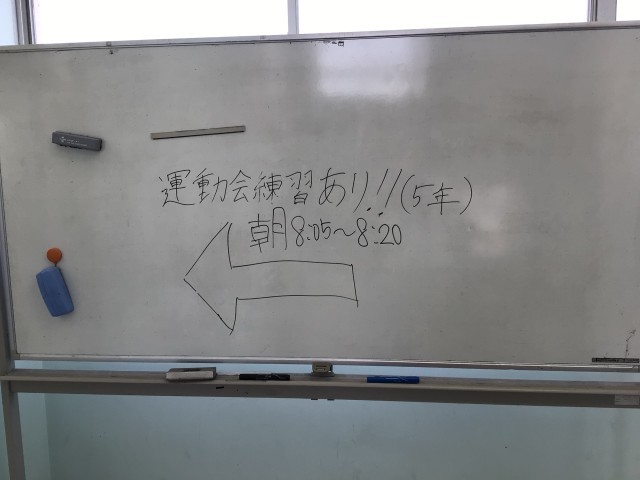 運動会練習あり!!(5年)
朝8:05~8:20